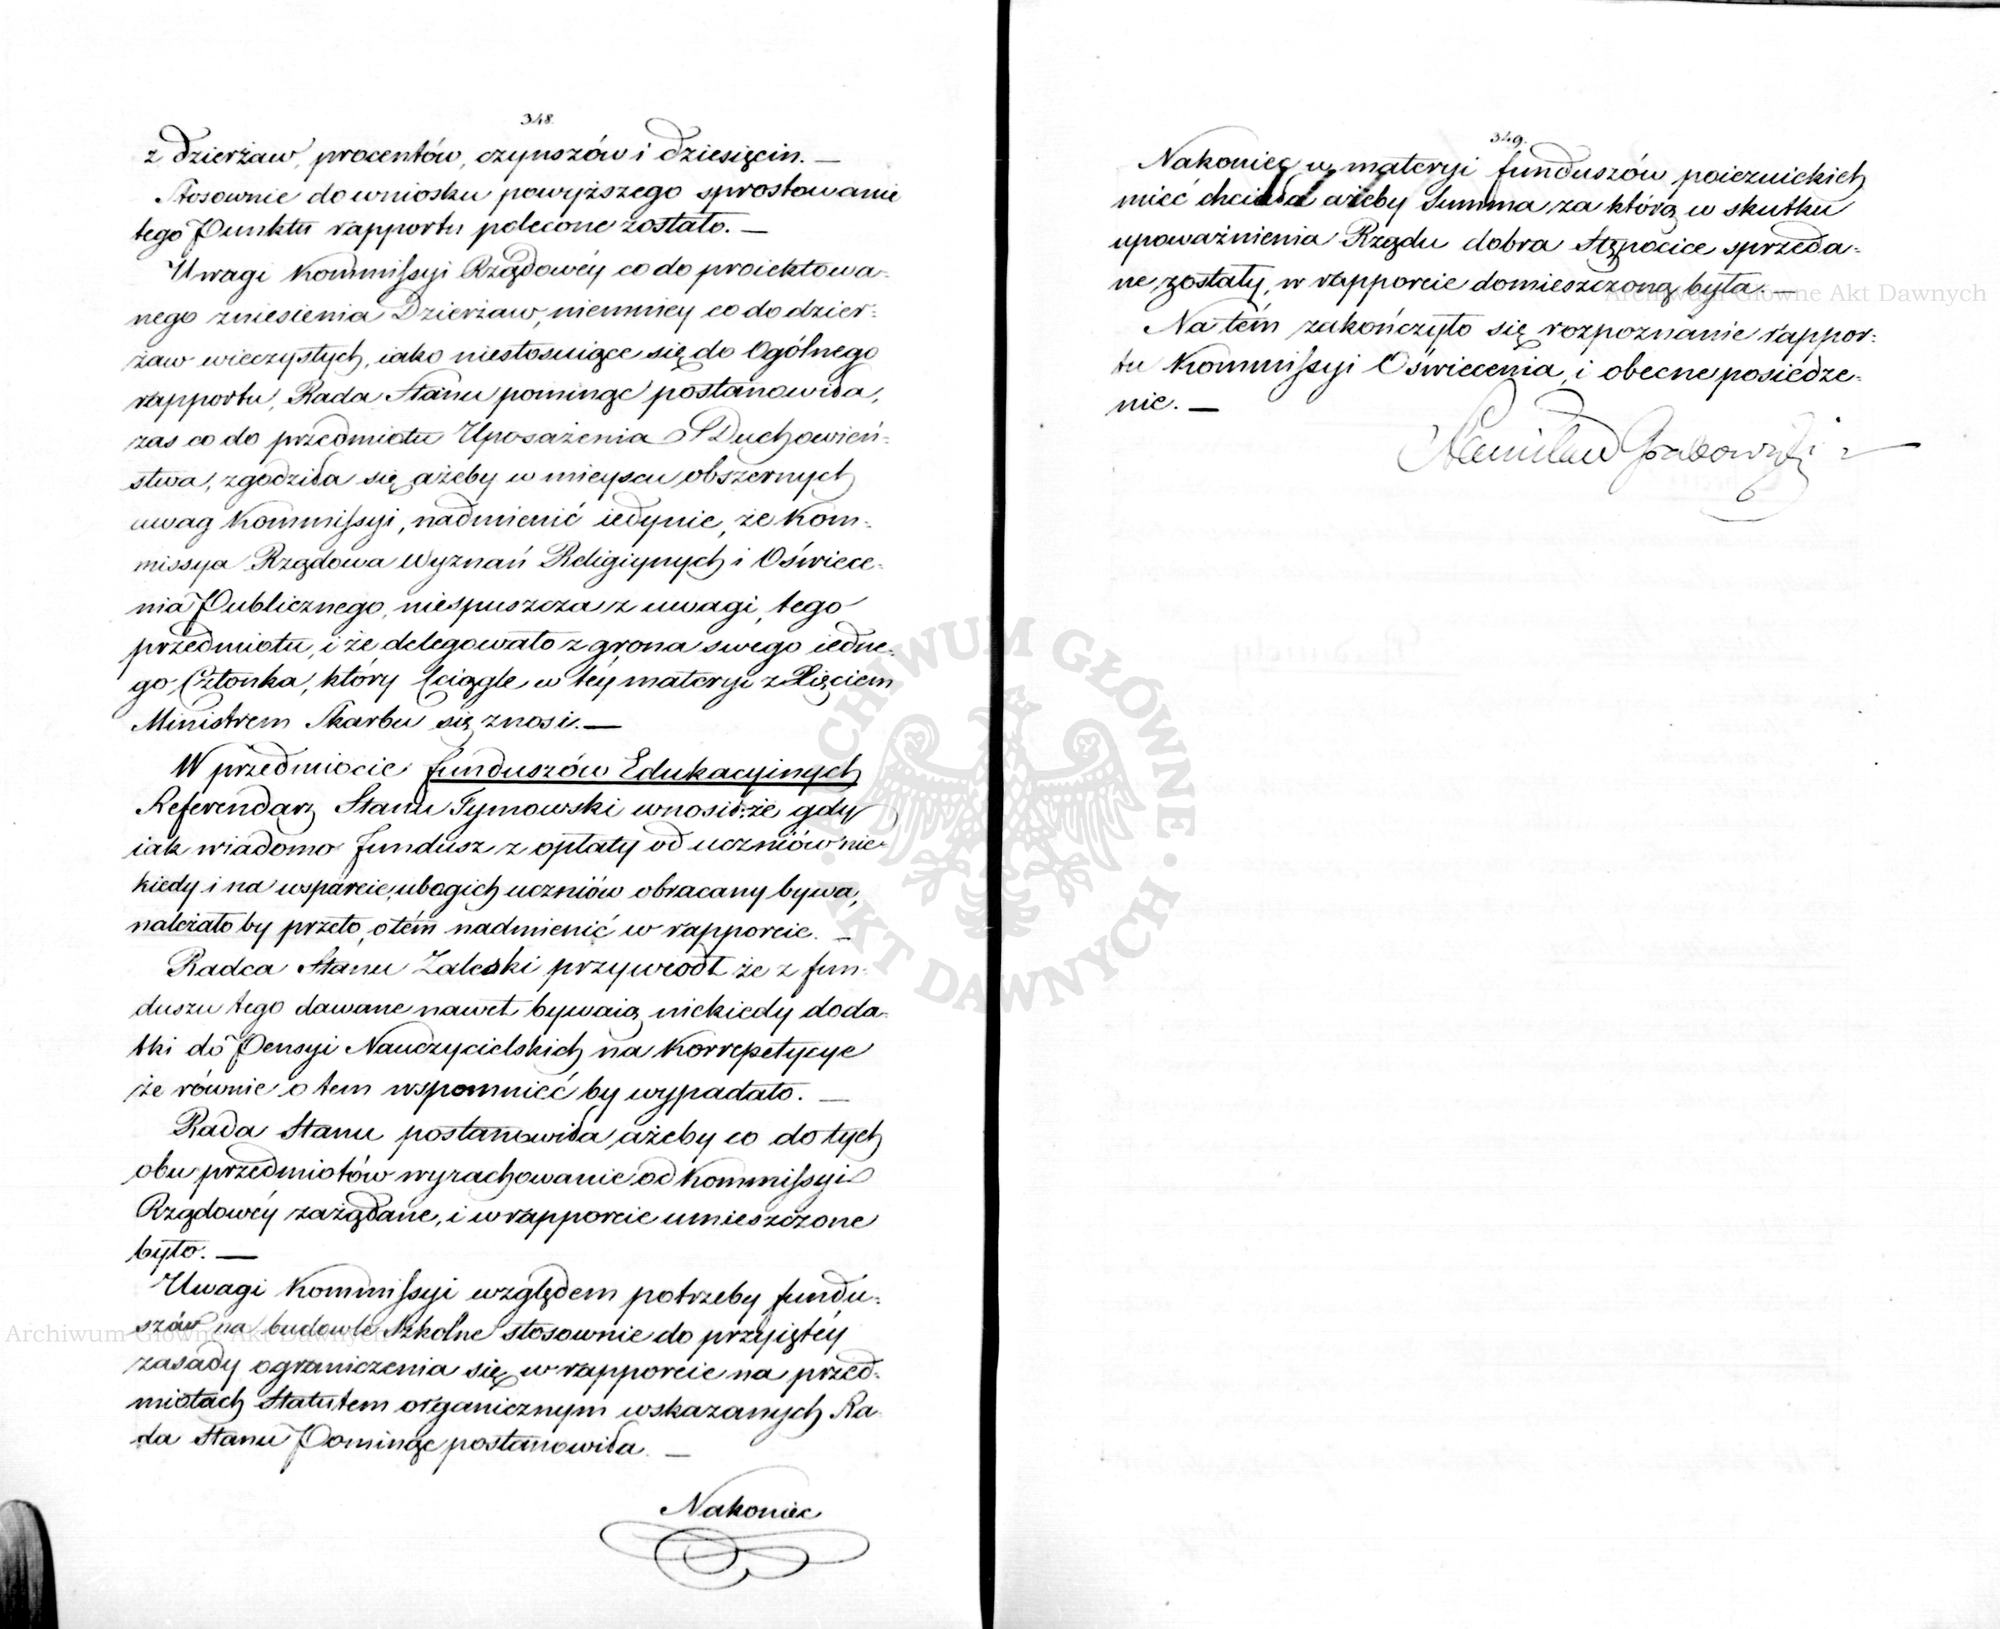 348.
z dzierżaw, procentów, czynszów i dziesięcin. —
Stosownie do wniosku powyższego sprostowanie
tego Punktu rapportu polecone zostało. —
Uwagi Kommissyi Rządowéy co do proiektowa-
nego zniesienia Dzierżaw, niemniey co do dzier-
żaw wieczystych, iako niestosuiące się do Ogólnego
rapportu, Rada Stanu pominąć postanowiła,
zaś co do przedmiotu Uposażenia Duchowień-
stwa, zgodziła się ażeby w mieyscu obszernych
uwag Kommissyi, nadmienić iedynie, że Kom-
missya Rządowa Wyznań Religiynych i Oświece-
nia Publicznego, niespuszcza z uwagi, tego
przedmiotu, i że delegowało z grona swego iedne-
go Członka, który ciągle w téy materyi z Xięciem
Ministrem Skarbu się znosi. —
W przedmiocie funduszów Edukacyinych
Referendarz Stanu Tymowski wnosił: że gdy
iak wiadomo fundusz z opłaty od uczniów nie-
kiedy i na wsparcie ubogich uczniów obracany bywa,
należało by przeto, o tém nadmienić w rapporcie. —
Radca Stanu Zaleski przywiódł że z fun-
duszu tego dawane nawet bywaią niekiedy doda-
tki do Pensyi Nauczycielskich na Korrepetycye
że równie o tem wspomnieć by wypadało. —
Rada Stanu postanowiła ażeby co do tych
obu przedmiotów wyrachowanie od Kommissyi
Rządowéy zażądane, i w rapporcie umieszczone
było. —
Uwagi Kommissyi względem potrzeby fundu-
szów na budowle Szkolne stosownie do przyiętéy
zasady ograniczenia się w rapporcie na przed-
miotach Statutem organicznym wskazanych Ra-
da Stanu Pominąć postanowiła. —
Nakoniec
349.
Nakoniec w materyi funduszów poiezuickich
mieć chciała ażeby Summa za którą w skutku
upoważnienia Rządu dobra Stępocice sprzeda-
ne zostały, w rapporcie domieszczoną była. —
Na tém zakończyło się rozpoznanie rappor-
tu Kommissyi Oświecenia, i obecne posiedze-
nie. —
Stanisław Grabowski
Archiwum Główne Akt Dawnych
Archiwum Główne Akt Dawnych
ARCHIWUM GŁÓWNE · AKT DAWNYCH ·